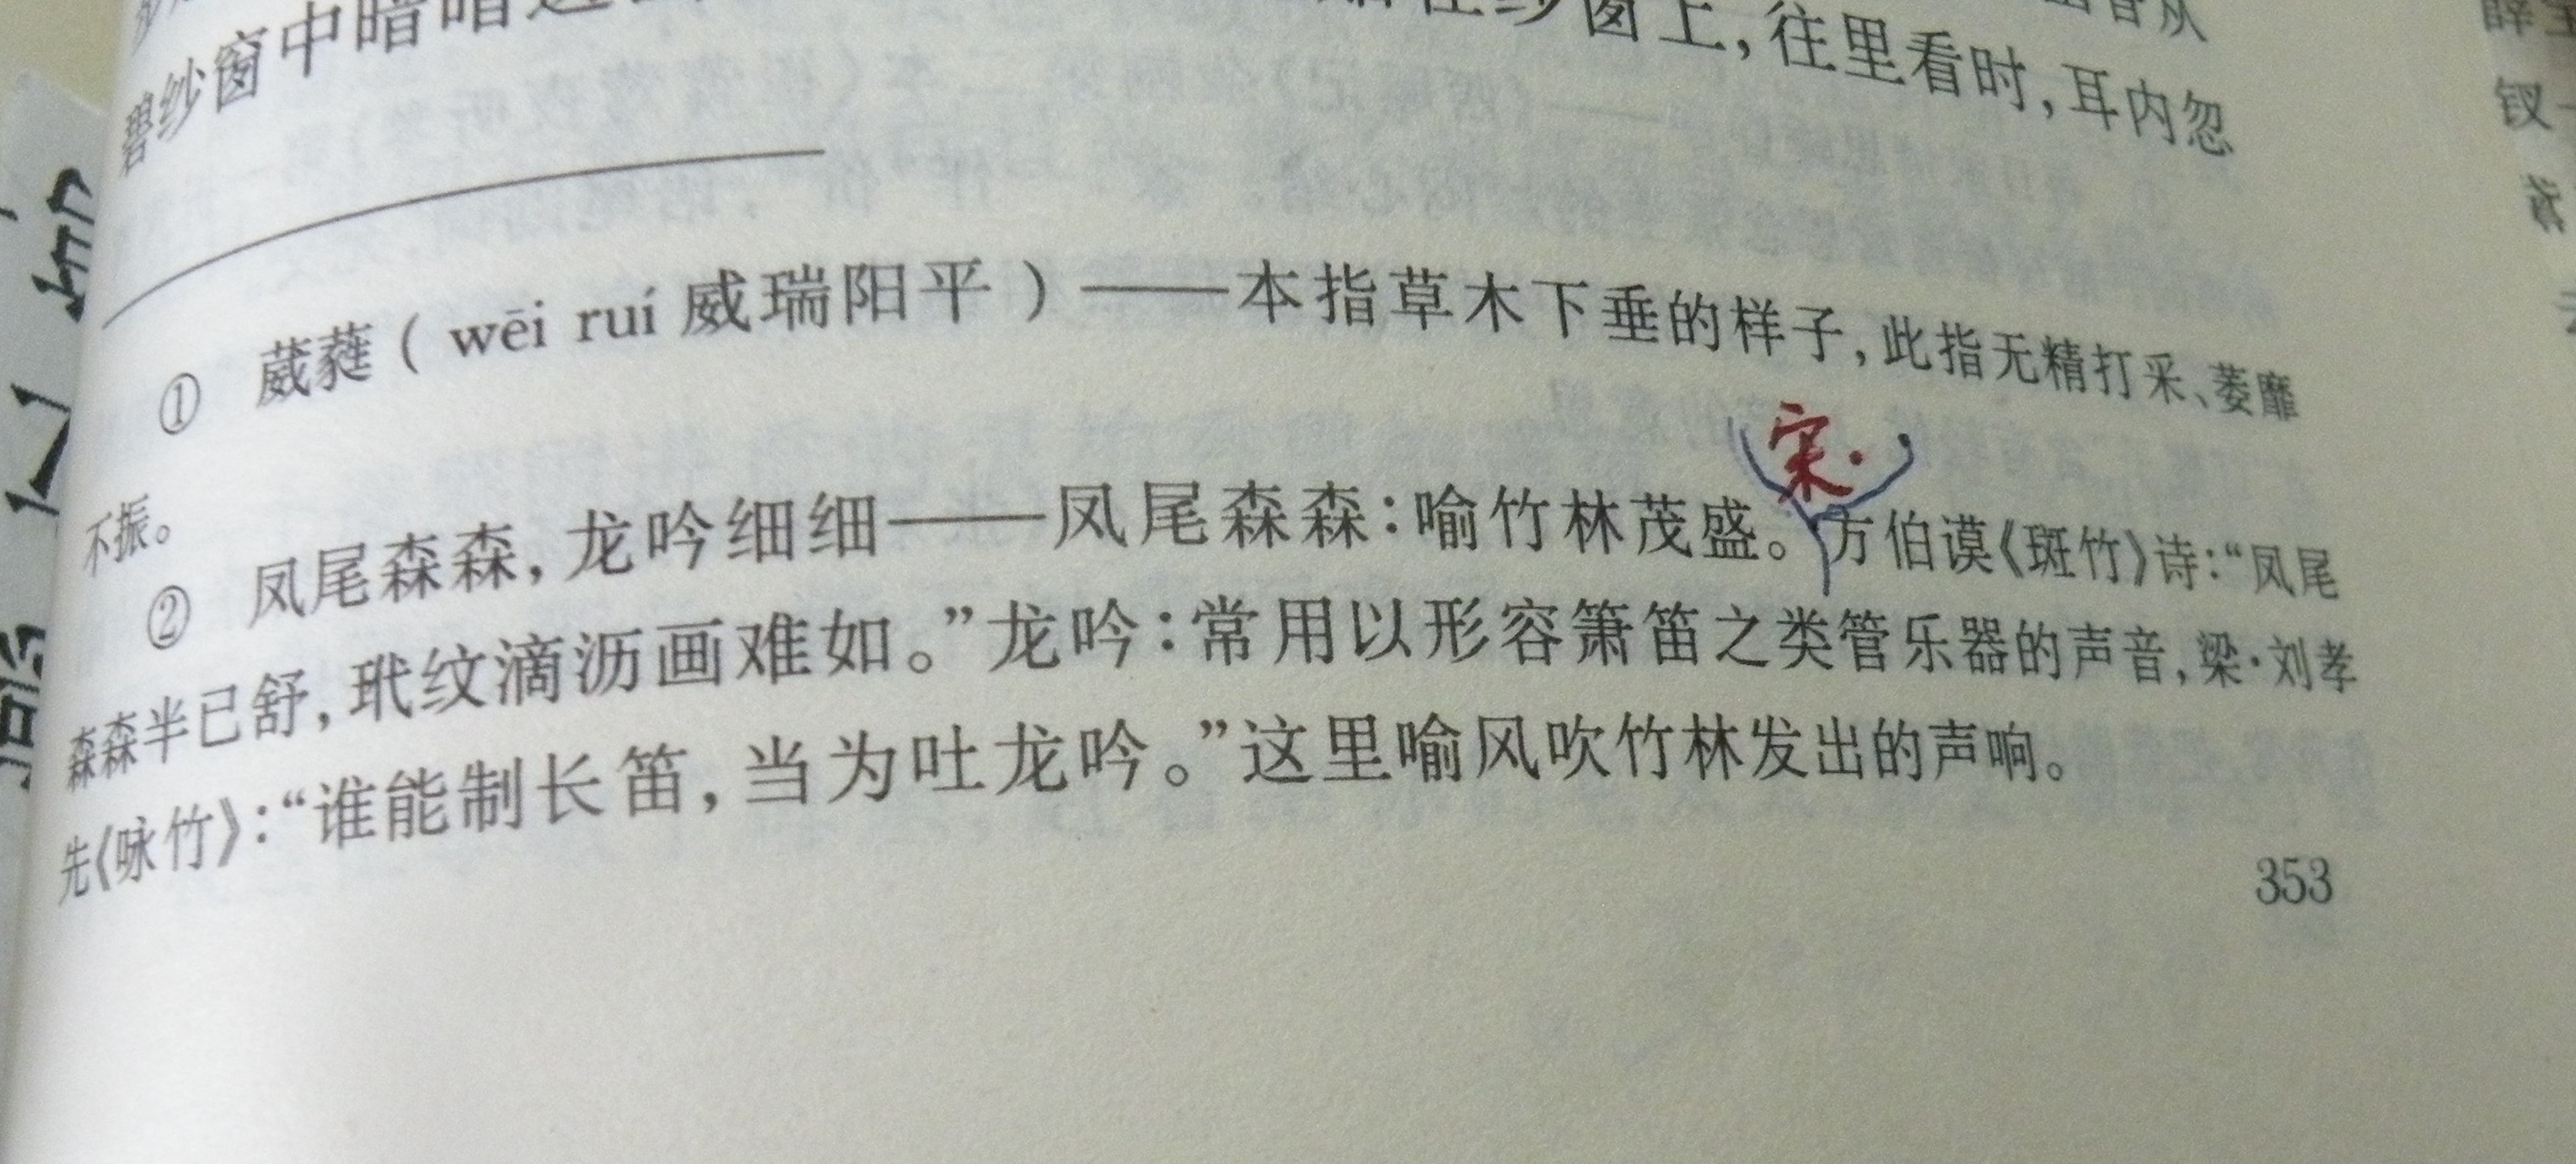 碧纱窗中暗暗
纱窗上，往里看时，耳内忽
① 葳蕤（wēi ruí 威瑞阳平）——本指草木下垂的样子，此指无精打采、萎靡
不振。
宋·
② 凤尾森森，龙吟细细——凤尾森森：喻竹林茂盛。方伯谟《斑竹》诗：“凤尾
森森半已舒，玳纹滴沥画难如。”龙吟：常用以形容箫笛之类管乐器的声音，梁·刘孝
先《咏竹》：“谁能制长笛，当为吐龙吟。”这里喻风吹竹林发出的声响。
353
钗